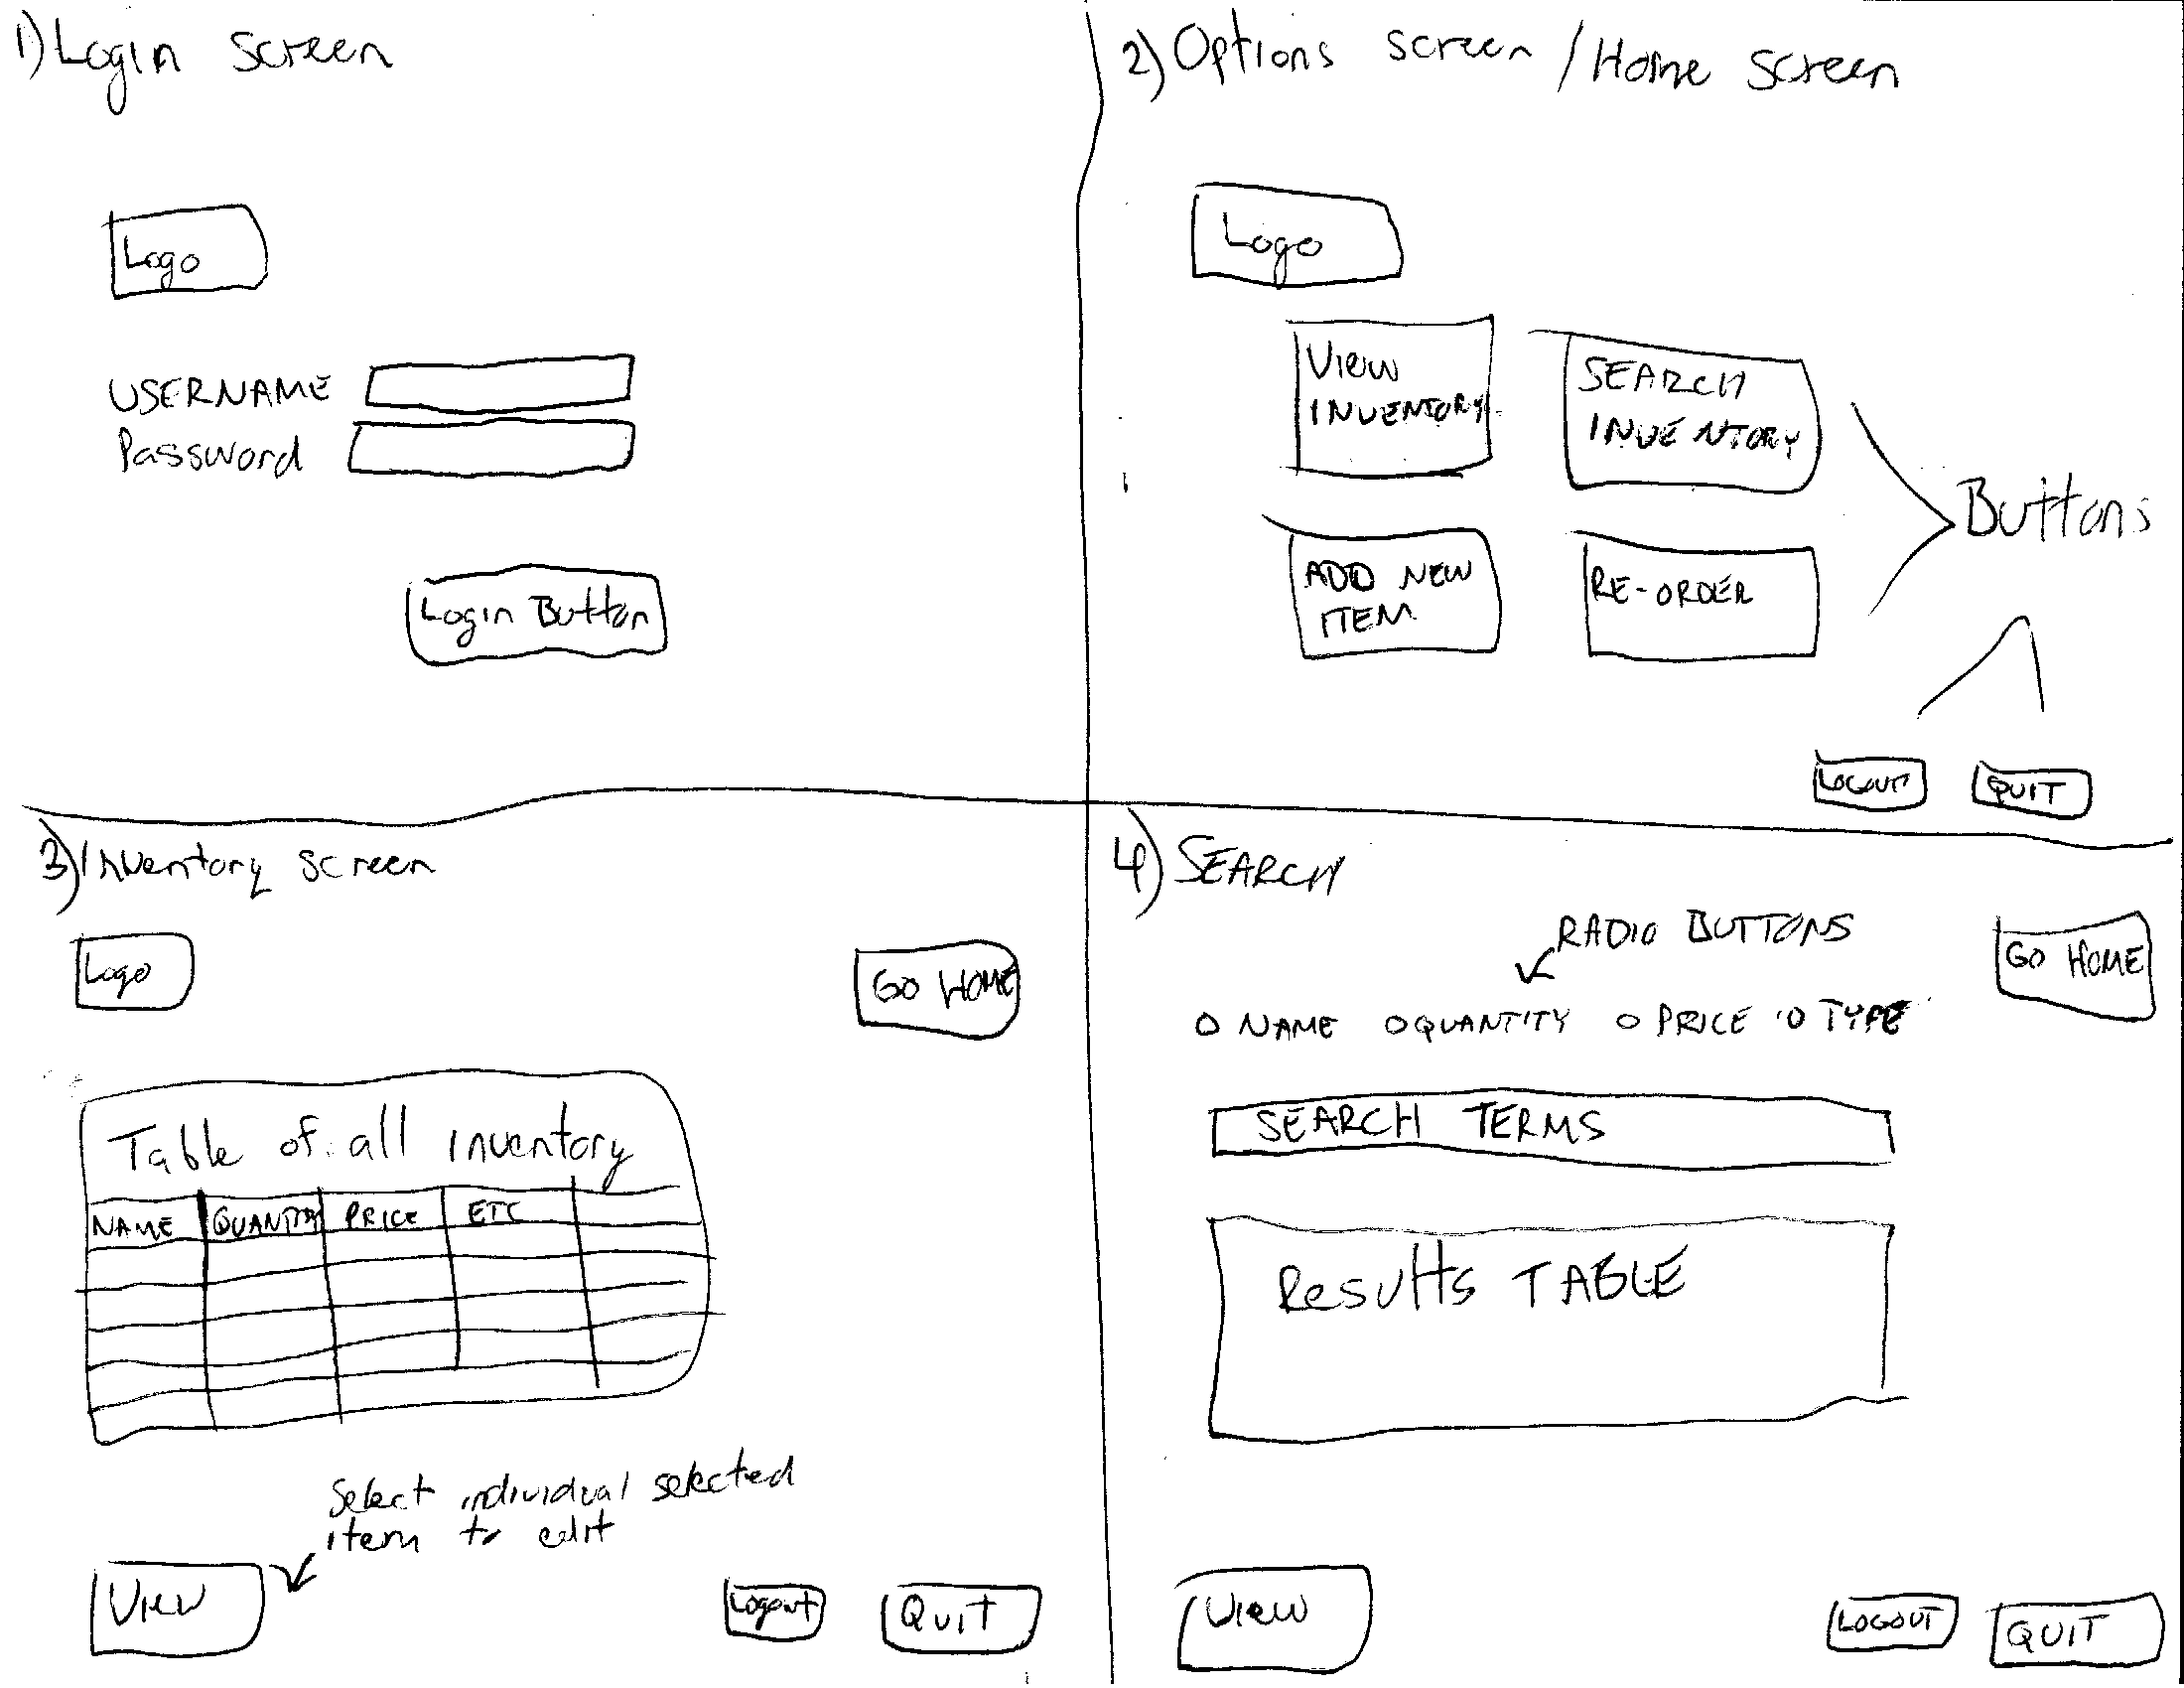 1) Login Screen
Logo
USERNAME
Password
Login Button
2) Options screen / Home screen
Logo
VIEW
INVENTORY
SEARCH
INVENTORY
ADD NEW
ITEM
RE-ORDER
Buttons
LOGOUT
QUIT
3) Inventory screen
Logo
GO HOME
Table of all inventory
NAME QUANTITY PRICE ETC
Select individual selected
item to edit
VIEW
Logout
QUIT
4) SEARCH
RADIO BUTTONS
GO HOME
NAME QUANTITY PRICE TYPE
SEARCH TERMS
Results TABLE
VIEW
LOGOUT
QUIT